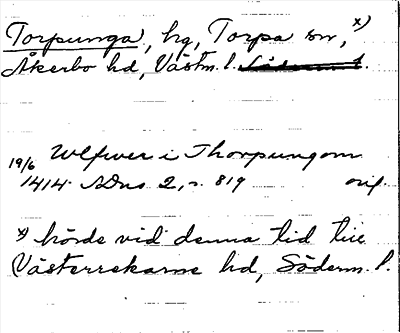 Torpunga, hg, Torpa sn, x)
Åkerbo hd, Västm. l.
Ulfwer i Thorpungom
19/6 1414 SDns 2, s. 819 orig.
x) hörde vid denna tid till
Västerrekarne hd, Söderm. l.